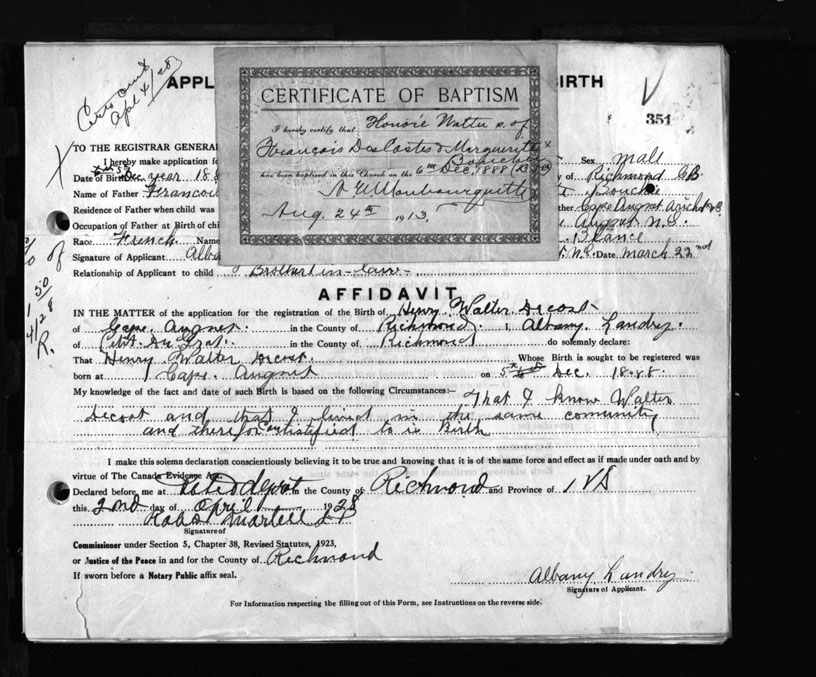 Certs out
Apl 4/28
APPL
BIRTH
351
CERTIFICATE OF BAPTISM
I hereby certify that Honoré Walter s. of
Francois DesCostes & Marguerite
Boucher
has been baptized in this Church on the 6th Dec. 1888 (B 5th)
Aug. 24th 1913.
TO THE REGISTRAR GENERAL
I hereby make application fo
Sex Male
Date of Birth 5th Dec year 188
of Richmond C.B.
Name of Father Francois
Residence of Father when child was
Occupation of Father at Birth of chi
Race French Name
Signature of Applicant Alba
N.S. Date March 22nd
Relationship of Applicant to child Brother in-law
AFFIDAVIT
IN THE MATTER of the application for the registration of the Birth of Henry Walter Decost
of Cape Auguet in the County of Richmond I, Albany Landry
of Petit De Grat in the County of Richmond do solemnly declare:
That Henry Walter Decost Whose Birth is sought to be registered was
born at Cape Auguet on 5th Dec. 1888
My knowledge of the fact and date of such Birth is based on the following Circumstances:— That I know Walter
Decost and that I lived in the same community
and therefor testified to is Birth
I make this solemn declaration conscientiously believing it to be true and knowing that it is of the same force and effect as if made under oath and by
virtue of The Canada Evidence Act
Declared before me at in the County of Richmond and Province of NS
this 2nd day of April 1928
Martell J P
Signature of
Commissioner under Section 5, Chapter 38, Revised Statutes, 1923,
or Justice of the Peace in and for the County of Richmond
If sworn before a Notary Public affix seal.
Albany Landry
Signature of Applicant.
For Information respecting the filling out of this Form, see Instructions on the reverse side.